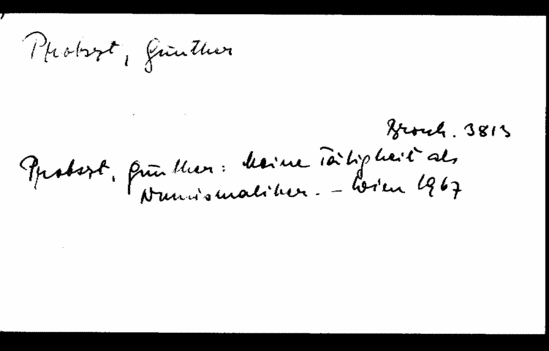 Probszt, Günther
Brosch. 3813
Probszt, Günther: Meine Tätigkeit als
Numismatiker. – Wien 1967